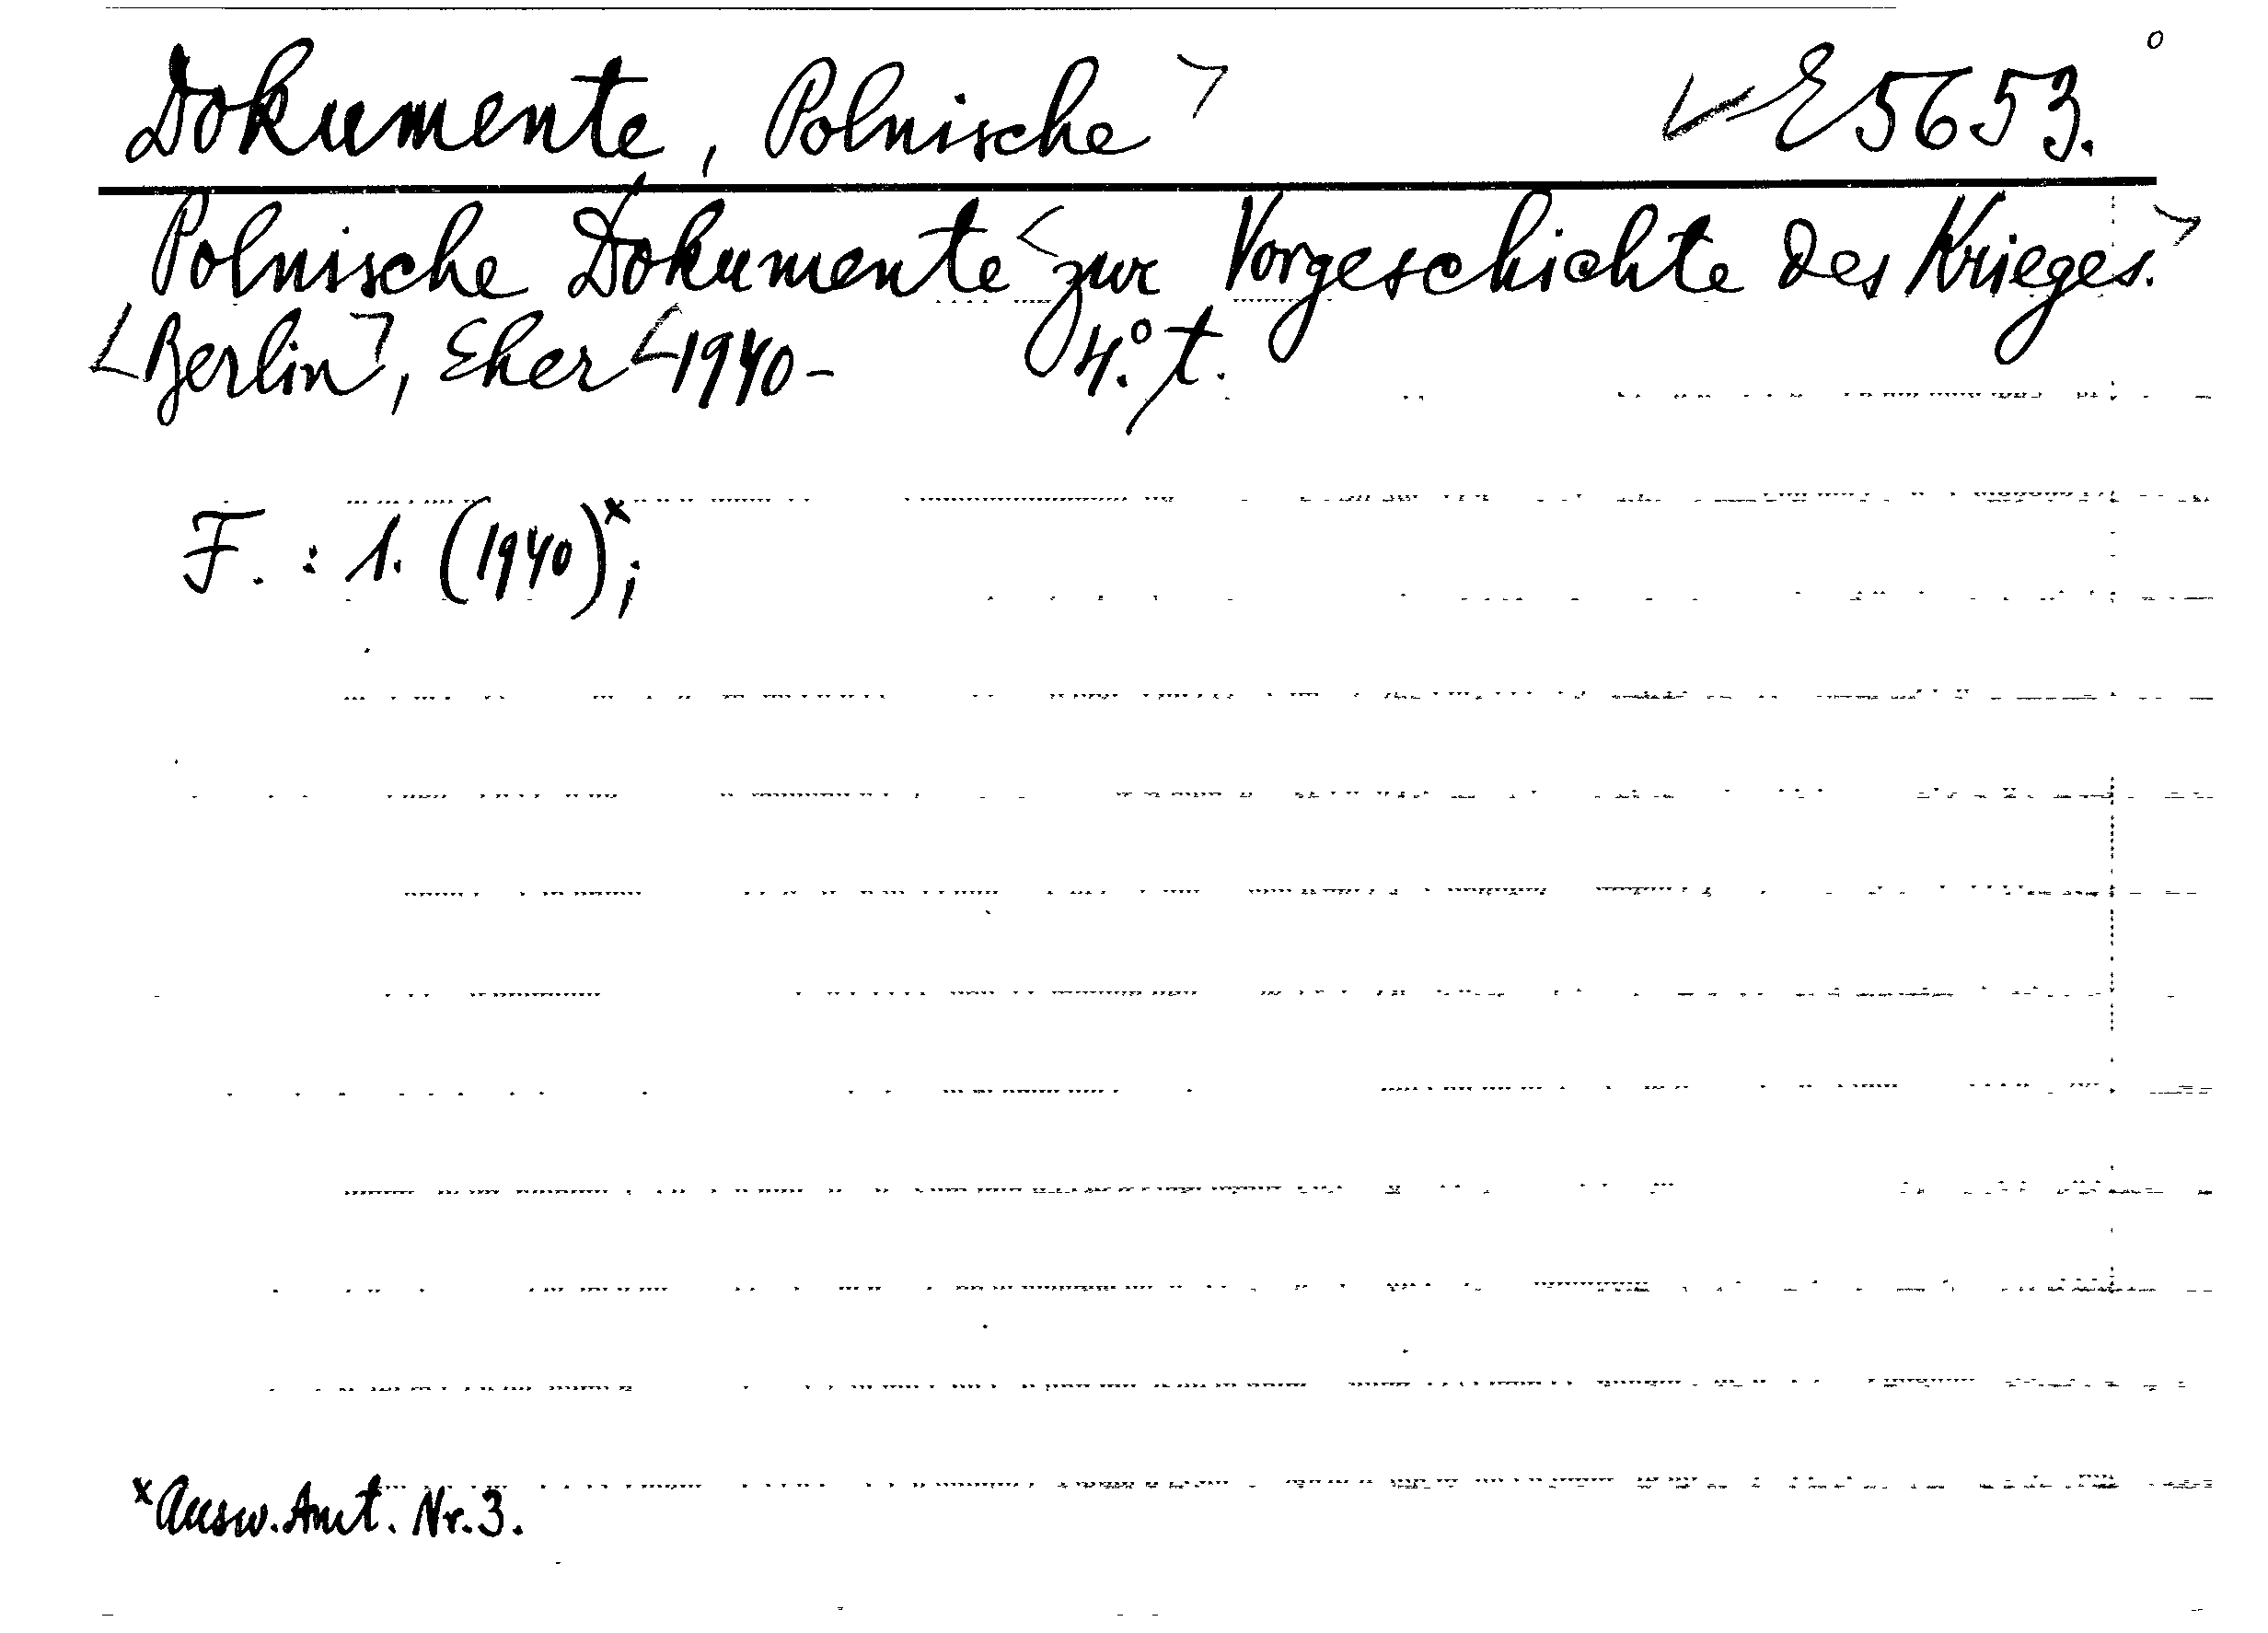 Dokumente, Polnische> E 5653.°
Polnische Dokumente <zur Vorgeschichte des Krieges.>
<Berlin>, Eher <1940- 4.° t.
F. : 1. (1940)ˣ;
ˣ Ausw. Amt. Nr. 3.